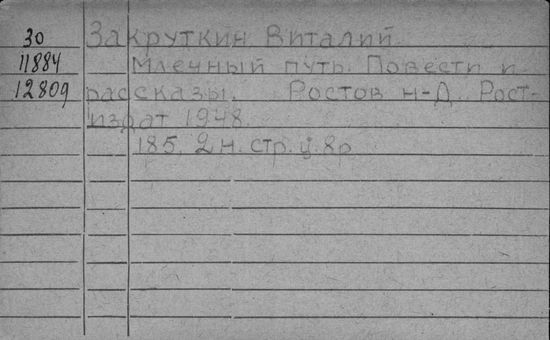 30 Закруткин Виталий.
11884 Млечный путь. Повести и
12809 рассказы. Ростов н-Д. Рост-
издат 1948.
185, 2 н. стр. ц. 8р